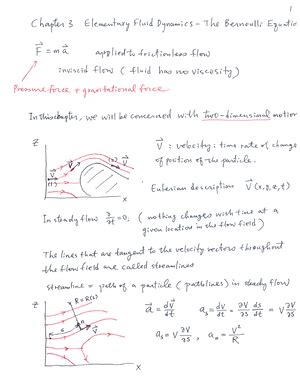 1
Chapter 3 Elementary Fluid Dynamics - The Bernoulli Equatio
F⃗ = m a⃗ applied to frictionless flow
inviscid flow ( fluid has no viscosity )
Pressure force + gravitational force
In this chapter, we will be concerned with two-dimensional motion
z
(2)
V⃗
(1)
x
V⃗ : velocity : time rate of change
of position of the particle.
Eulerian description V⃗ (x, y, z, t)
In steady flow ∂/∂t = 0, ( nothing changes with time at a
given location in the flow field )
The lines that are tangent to the velocity vectors throughout
the flow field are called streamlines
streamline = path of a particle ( pathlines ) in steady flow
z
R = R(s)
s
n
V⃗
x
a⃗ = dV⃗/dt a_s = dV/dt = ∂V/∂s ds/dt = V ∂V/∂s
a_s = V ∂V/∂s , a_n = V²/R